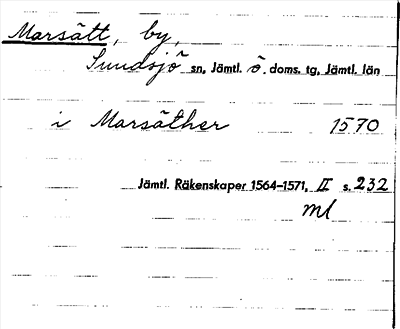 Marsätt, by,
Sundsjö sn, Jämtl. ö. doms. tg, Jämtl. län
i Marsäther 1570
Jämtl. Räkenskaper 1564–1571, II s. 232
ml